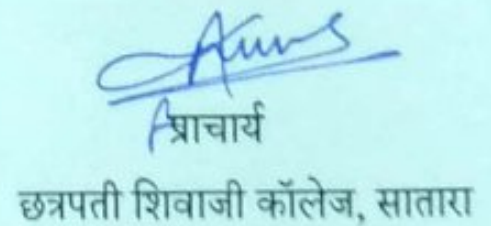 प्राचार्य
छत्रपती शिवाजी कॉलेज, सातारा